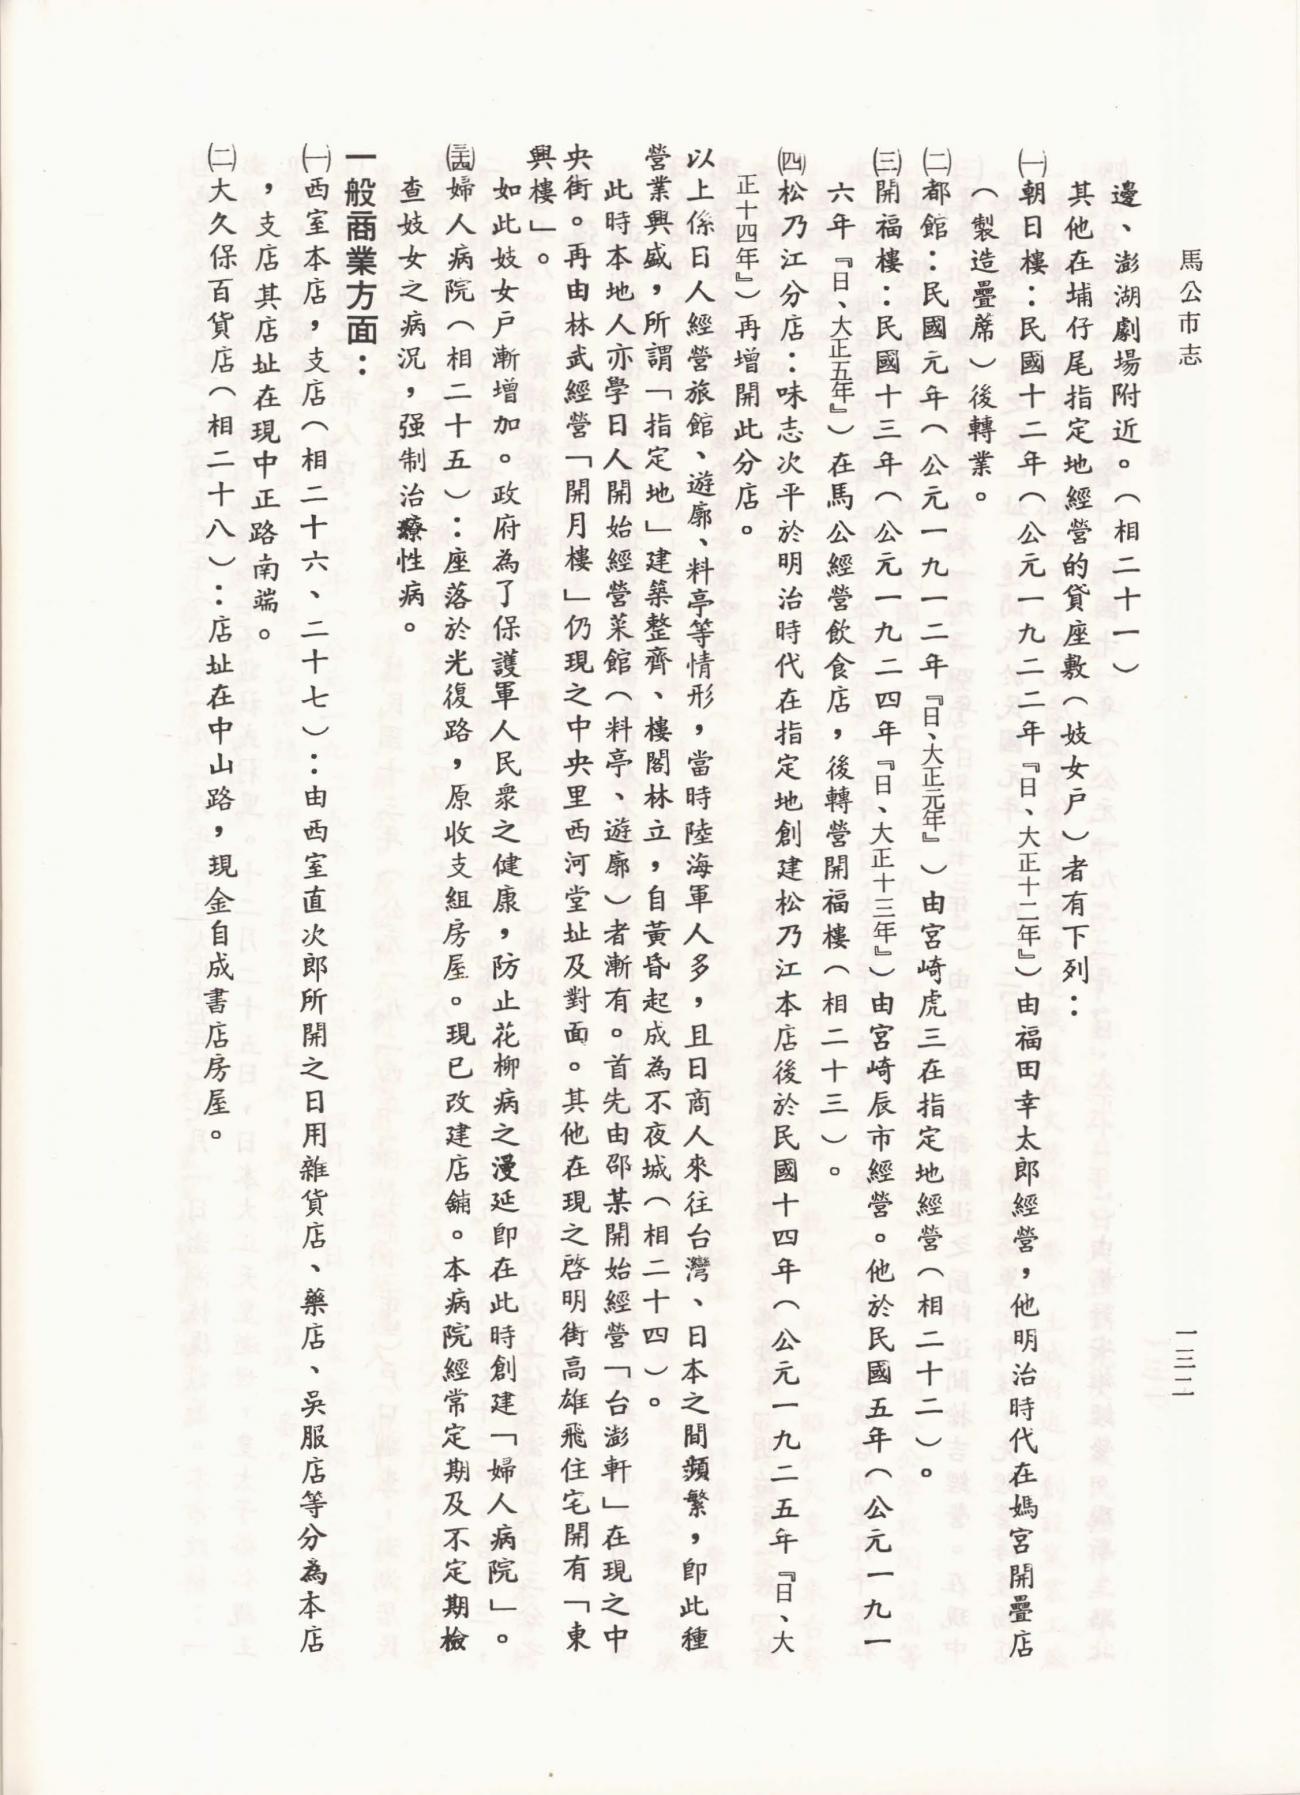 馬公市志
一三二
邊、澎湖劇場附近。(相二十一)
其他在埔仔尾指定地經營的貸座敷(妓女戶)者有下列:
㈠朝日樓:民國十二年(公元一九二二年『日、大正十二年』)由福田幸太郎經營,他明治時代在媽宮開疊店
(製造疊蓆)後轉業。
㈡都館:民國元年(公元一九一二年『日、大正元年』)由宮崎虎三在指定地經營(相二十二)。
㈢開福樓:民國十三年(公元一九二四年『日、大正十三年』)由宮崎辰市經營。他於民國五年(公元一九一
六年『日、大正五年』)在馬公經營飲食店,後轉營開福樓(相二十三)。
㈣松乃江分店:味志次平於明治時代在指定地創建松乃江本店後於民國十四年(公元一九二五年『日、大
正十四年』)再增開此分店。
以上係日人經營旅館、遊廓、料亭等情形,當時陸海軍人多,且日商人來往台灣、日本之間頻繁,卽此種
營業興盛,所謂「指定地」建築整齊、樓閣林立,自黃昏起成為不夜城(相二十四)。
此時本地人亦學日人開始經營菜館(料亭、遊廓)者漸有。首先由邵某開始經營「台澎軒」在現之中
央街。再由林武經營「開月樓」仍現之中央里西河堂址及對面。其他在現之啓明街高雄飛住宅開有「東
興樓」。
如此妓女戶漸增加。政府為了保護軍人民衆之健康,防止花柳病之漫延卽在此時創建「婦人病院」。
婦人病院(相二十五):座落於光復路,原收支組房屋。現已改建店舖。本病院經常定期及不定期檢
查妓女之病況,强制治療性病。
一般商業方面:
㈠西室本店,支店(相二十六、二十七):由西室直次郎所開之日用雜貨店、藥店、吳服店等分為本店
,支店其店址在現中正路南端。
㈡大久保百貨店(相二十八):店址在中山路,現金自成書店房屋。